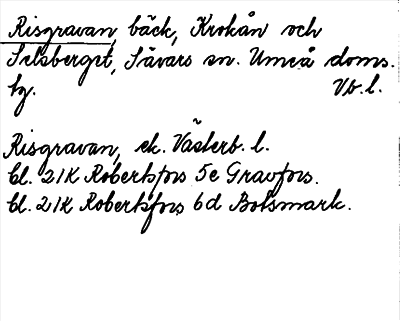 Risgravan, bäck, Krokån och
Selsberget, Sävars sn. Umeå doms.
hg. Vb. l.
Risgravan, ek. Västerb. l.
bl. 21K Robertsfors 5e Gravfors.
bl. 21K Robertsfors 6d Botsmark.